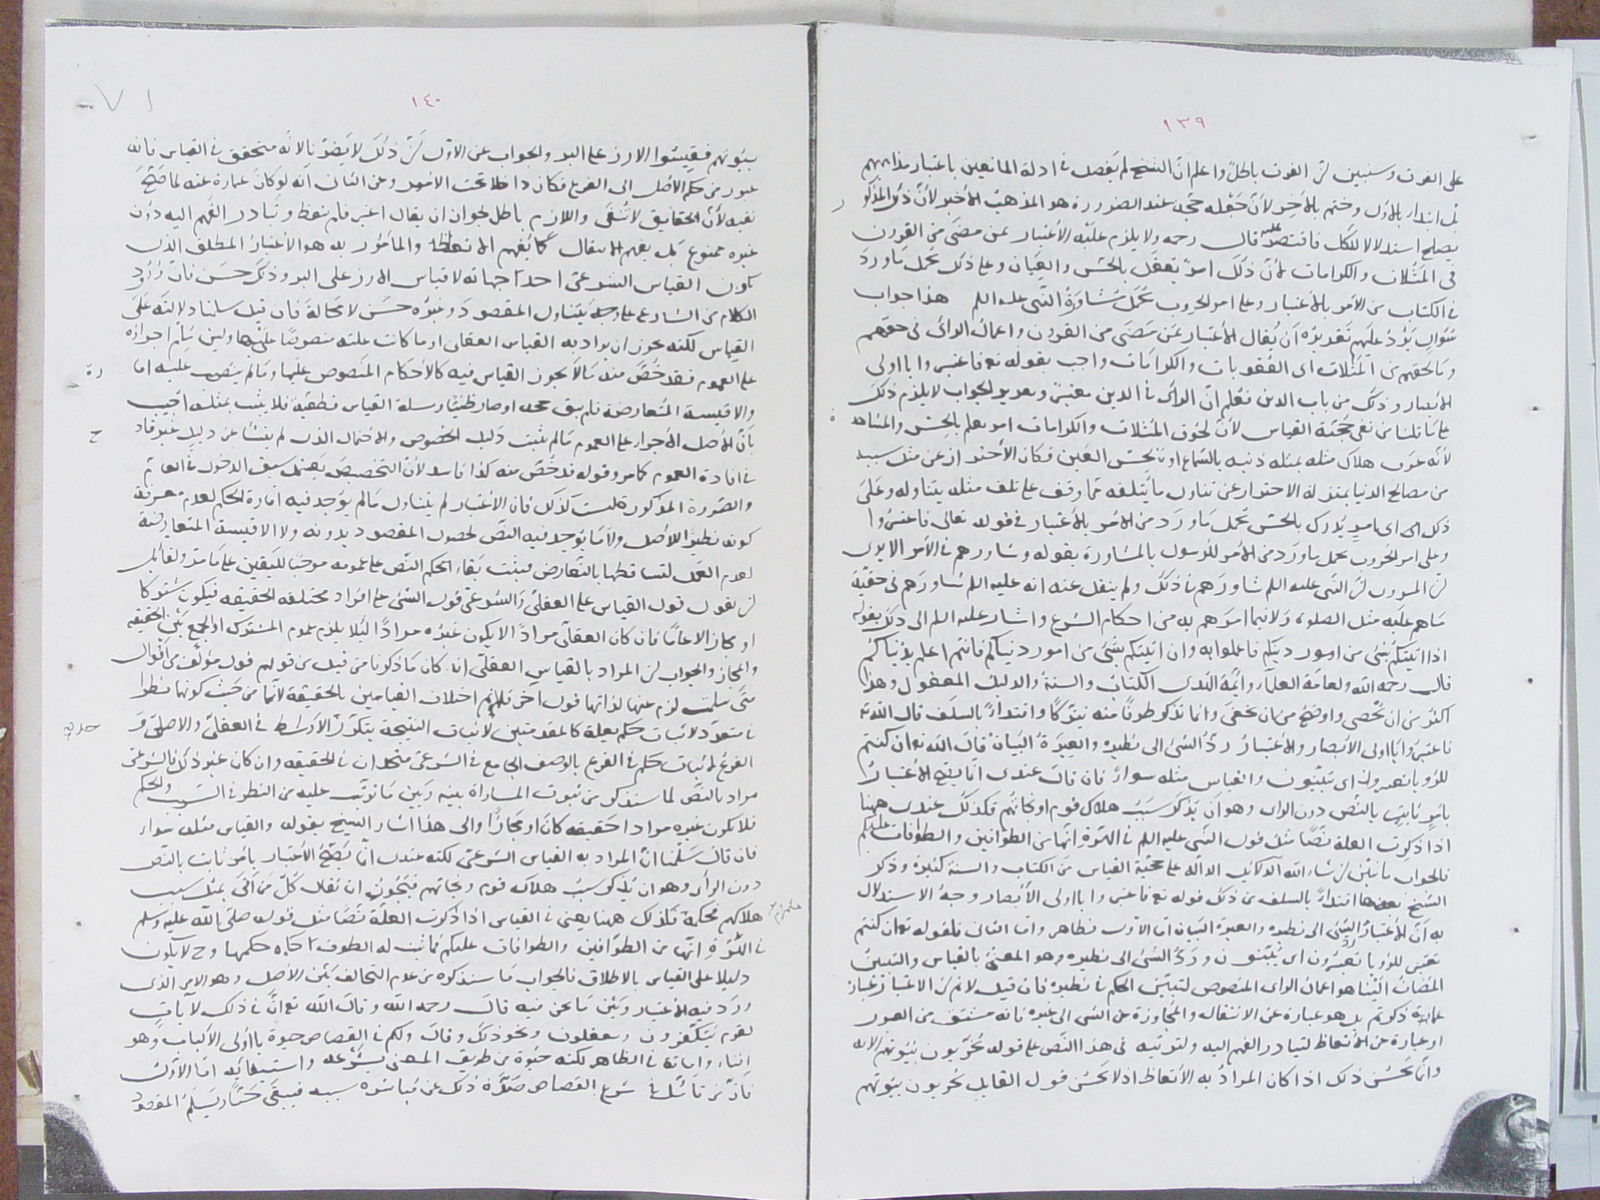 ١٣٩
على الفرق وسنبين لأن الفرق باطل واعلم أن الشيخ لم يفصل في ادلة المانعين باعتبار مذاهبهم
بل ابتدأ بالأول وختم بالأخر لأن جعله حجة عند الضرورة هو المذهب الأخير لأن ذكر المذكور
يصلح استدلالا للكل فاقتصر عليه قال رحمه ولا يلزم عليه الأعتبار بمن مضى من القرون
في المثلات والكرامات لأن ذلك امر يعقل بالحس والعيان وعلى ذلك يحمل ما ورد
في الكتاب من الأمر بالأعتبار وعلى امر الحروب تحمل مشاورة النبي عليه السلم هذا جواب
سؤال يرد عليهم تقديره أن يقال الأعتبار بمن مضى من القرون واعمال الرأي في حقهم
وما لحقهم من المثلات اى العقوبات والكرامات واجب بقوله تع فاعتبروا يا اولى
الأبصار وذلك من باب الدين فعلم أن الرأى في الدين معتبر وتقرير الجواب لا يلزم ذلك
على ما قلنا من نفى حجية القياس لأن لحوق المثلات والكرامات امر يعلم بالحس والمشاهدة
لأنه عرف هلاك مثله بمثله ذنبه بالسماع او بحس العين فكان الأحتراز عن مثل سببه
من مصالح الدنيا بمنزلة الاحتراز عن تناول ما يتلفه مما وقف على تلف مثله بتناوله وعلى
ذلك اى اى امر يدرك بالحس تحمل ما ورد من الأمر بالأعتبار في قوله تعالى فاعتبروا
وعلى امر الحروب يحمل ما ورد من الأمر للرسول بالمشاورة بقوله وشاورهم في الأمر
لأن المروى لأن النبى عليه السلم شاورهم في ذلك ولم ينقل عنه انه عليه السلم شاورهم في حقية
ما هم عليه مثل الصلوة ولا فيما امرهم به من احكام الشرع واشار عليه السلم الى ذلك بقوله
اذا اتيتكم بشئ من امور دينكم فاعملوا به وان اتيتكم بشئ من امور دنياكم فانتم اعلم بدنياكم
قال رحمه الله ولعامة العلماء وائمة الهدى الكتاب والسنة والدليل المعقول وهذا
اكثر من ان تحصى واوضح من ان تخفى وانما نذكر طرفا منه تبركا واقتداء بالسلف قال الله تع
فاعتبروا يا اولى الأبصار والأعتبار رد الشئ الى نظيره والعبرة البيان قال الله تع ان كنتم
للرؤيا تعبرون اى تبينون والقياس مثله سواء فان قال عندى انما يصح الأعتبار
بأمر ثابت بالنص دون الرأى وهو ان يذكر سبب هلاك قوم او نجاتهم فكذلك عندى ههنا
اذا ذكرت العلة نصا مثل قول النبى عليه السلم في الهرة انها من الطوافين والطوافات عليكم
فالجواب ما نبين ان شاء الله الدلائل الدالة على حجية القياس من الكتاب والسنة كثيرة وذكر
الشيخ بعضها اقتداء بالسلف من ذلك قوله تع فاعتبروا يا اولى الأبصار وجه الاستدلال
به أن الأعتبار رد الشئ الى نظيره والعبرة البيان أما الأول فظاهر واما الثانى فلقوله تع ان كنتم
للرؤيا تعبرون اى تبينون ورد الشئ الى نظيره هو المعنى بالقياس والتبيين
المضاف الينا هو اعمال الرأى المنصوص لتبيين الحكم في نظيره فان قيل لا نم أن الاعتبار عبارة
عما ذكرتم بل هو عبارة عن الانتقال والمجاوزة عن الشئ الى غيره فانه مشتق من العبور
او عبارة عن الأتعاظ لتبادر الفهم اليه ولترتبه في هذا النص على قوله يخربون بيوتهم الآية
وانما يحسن ذلك اذا كان المراد به الأتعاظ اذ لا يحسن قول القايل يخربون بيوتهم
١٤٠
بيوتهم فقيسوا الارز على البر والجواب عن الأول لأن ذلك لا يضرنا لأنه متحقق في القياس فانه
عبور من حكم الأصل الى الفرع فكان داخلا تحت الأمر وعن الثانى انه لو كان عبارة عنه لما صح
نفيه لأن الحقايق لا تنفى واللازم باطل لجواز ان يقال اعتبر فلم يتعظ وتبادر الفهم اليه دون
غيره ممنوع بل يفهم الانتقال كما يفهم الاتعاظ والمأمور به هو الأعتبار المطلق الذى
يكون القياس الشرعى احد جهاته لا قياس الارز على البر وذلك حسن فان ورود
الكلام من الشارع على وجه يتناول المقصود وغيره حسن لا محالة فان قيل سلمنا دلالته على
القياس لكنه يجوز ان يراد به القياس العقلى او ما كانت علته منصوصا عليها ولئن سلم اجراؤه
على العموم فقد خص منه ما لا يجوز القياس فيه كالأحكام المنصوص عليها وما لم ينصب عليه امارة
والاقيسة المتعارضة فلم يبق حجة او صار ظنيا ومسئلة القياس قطعية فلا يثبت بمثله اجيب
بأن الأصل الأجراء على العموم ما لم يثبت دليل الخصوص والأحتمال الذى لم ينشأ عن دليل غير قادح
في افادة العموم كما مر وقوله قد خص منه كذا فاسد لأن التخصيص يعتمد سبق الدخول في العام
والصورة المذكورة ليست كذلك فان الاعتبار لم يتناول ما لم يوجد فيه امارة الحكم لعدم معرفة
كونه نظيرا للأصل ولا ما يوجد فيه النص لحصول المقصود بدونه ولا الاقيسة المتعارضة
لعدم العمل لتساقطها بالتعارض فيثبت بقاء الحكم النص على عمومه موجبا لليقين على ما مر ولقائل
ان يقول قول القياس على العقلى والشرعى قول الشئ على افراد مختلفة الحقيقة فيكون مشتركا
او مجازا لا عاما فان كان العقلى مرادا لا يكون غيره مرادا لئلا يلزم عموم المشترك او الجمع بين الحقيقة
والمجاز والجواب ان المراد بالقياس العقلى ان كان ما ذكرنا من قبل من قولهم قول مؤلف من اقوال
متى سلمت لزم عنها لذاتها قول آخر فلا نم اختلاف القياسين بالحقيقة لأنهما من حيث كونها نظرا
في متعدد لاثبات حكم بعلة كالمقدمتين لأثبات النتيجة بتكرر الأوسط في العقلى والاصلى و
الفرع لأثبات حكم في الفرع بالوصف الجامع في الشرعى متحدان في الحقيقة وان كان غير ذلك فالشرعى
مراد بالنص لما سنذكر من ثبوت المساواة بينه وبين ما ترتب عليه من النظر في السبب والحكم
فلا يكون غيره مرادا حقيقة كان او مجازا والى هذا اشار الشيخ بقوله والقياس مثله سواء
فان قال سلمنا أن المراد به القياس الشرعى لكنه عندى انما يصح الأعتبار بأمر ثابت بالنص
دون الرأى وهو ان يذكر سبب هلاك قوم ونجاتهم فيجوز ان يقال كل من أتى بمثل سبب
هلاكهم فحكمه كذلك ههنا يعنى في القياس اذا ذكرت العلة نصا مثل قوله صلى الله عليه وسلم
في الهرة انها من الطوافين والطوافات عليكم فما ثبت له الطوف اخذ حكمها وح لا يكون
دليلا على القياس بالاطلاق فالجواب ما سنذكره من عدم التخالف بين الأصل وهو الامر الذى
ورد فيه الأعتبار وبين ما نحن فيه قال رحمه الله وقال الله تع ان في ذلك لآيات
لقوم يتفكرون ويعقلون ونحو ذلك وقال ولكم في القصاص حيوة يا اولى الألباب وهو
افناء واماتة في الظاهر لكنه حيوة من طريق المعنى بشرعه واستيفائه اما الأول
فأن من تأمل في شرع القصاص صده ذلك عن مباشرة سببه فيبقى حيا ويسلم المقصود